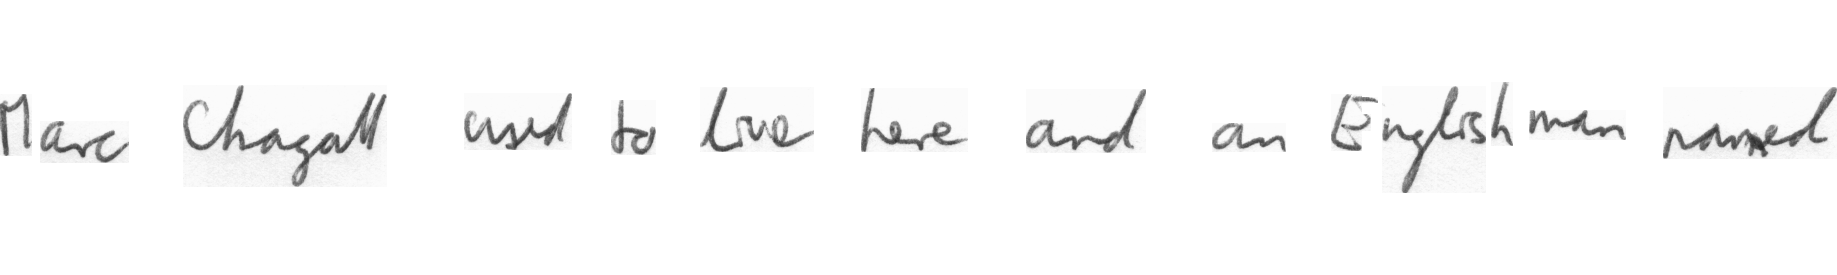 Marc Chagall used to live here and an Englishman named